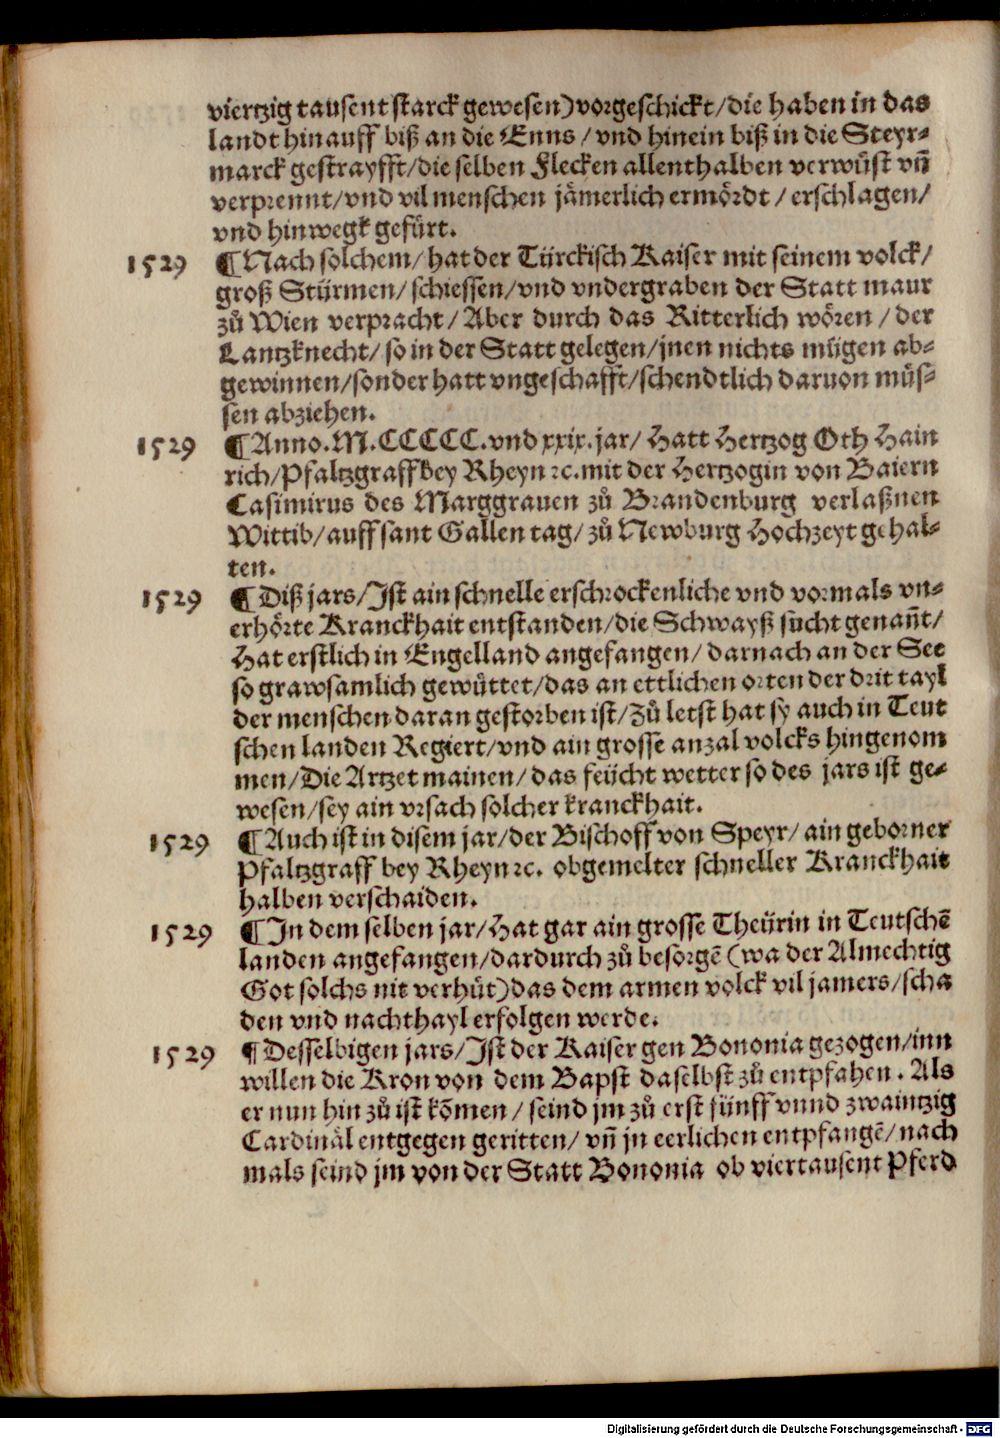 viertzig tausent starck gewesen) vorgeschickt / die haben in das
landt hinauff biß an die Enns / vnd hinein biß in die Steyr⸗
marck gestraifft / die selben Flecken allenthalben verwüst vñ
verprennt / vnd vil menschen jämerlich ermördt / erschlagen /
vnd hinwegk gefürt.
1529 ¶ Nach solchem / hat der Türckisch Kaiser mit seinem volck /
groß Stürmen / schiessen / vnd vndergraben der Statt maur
zů Wien verpracht / Aber durch das Ritterlich wören / der
Lantzknecht / so in der Statt gelegen / jnen nichts mügen ab⸗
gewinnen / sonder hatt vngeschafft / schendtlich daruon müs⸗
sen abziehen.
1529 ¶ Anno. M. CCCCC. vnd xxix. jar / Hatt Hertzog Oth Hain
rich / Pfaltzgraff bey Rheyn ꝛc. mit der Hertzogin von Baiern
Casimirus des Marggrauen zů Brandenburg verlaßnen
Wittib / auff sant Gallen tag / zů Newburg Hochzeyt gehal⸗
ten.
1529 ¶ Diß jars / Ist ain schnelle erschrockenliche vnd vormals vn⸗
erhörte Kranckhait entstanden / die Schwayß sucht genañt /
Hat erstlich in Engelland angefangen / darnach an der See
so grawsamlich gewüttet / das an ettlichen orten der drit tayl
der menschen daran gestorben ist / Zů letst hat sy auch in Teut
schen landen Regiert / vnd ain grosse anzal volcks hingenom
men / Die Artzet mainen / das feücht wetter so des jars ist ge⸗
wesen / sey ain vrsach solcher kranckhait.
1529 ¶ Auch ist in disem jar / der Bischoff von Speyr / ain geborner
Pfaltzgraff bey Rheyn ꝛc. obgemelter schneller Kranckhait
halben verschaiden.
1529 ¶ In dem selben jar / Hat gar ain grosse Theürin in Teutschẽ
landen angefangen / dardurch zů besorgẽ (wa der Almechtig
Got solchs nit verhüt) das dem armen volck vil jamers / scha
den vnd nachthayl erfolgen werde.
1529 ¶ Desselbigen jars / Ist der Kaiser gen Bononia gezogen / inn
willen die Kron von dem Bapst daselbst zů entpfahen. Als
er nun hin zů ist kõmen / seind jm zů erst fünff vnnd zwaintzig
Cardinäl entgegen geritten / vñ jn eerlichen entpfangẽ / nach
mals seind jm von der Statt Bononia ob viertausent Pferd
Digitalisierung gefördert durch die Deutsche Forschungsgemeinschaft - DFG